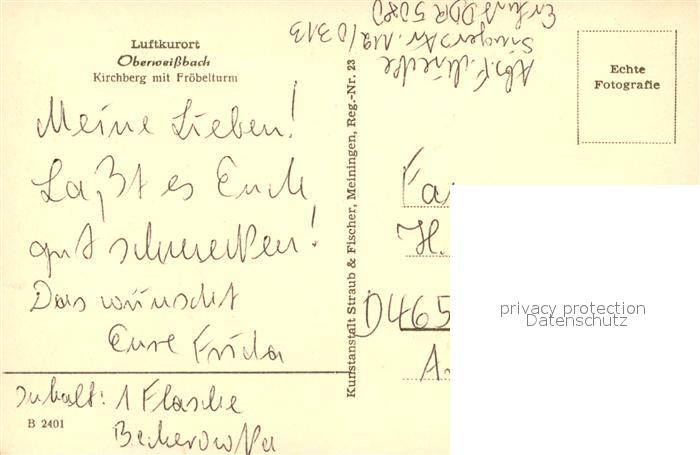 Luftkurort
Oberweißbach
Kirchberg mit Fröbelturm
Meine Lieben!
Laßt es Euch
gut schmecken!
Das wünscht
Eure Frida
Inhalt: 1 Flasche
B 2401
Kunstanstalt Straub & Fischer, Meiningen, Reg.-Nr. 23
Abs. F.
Str. 112/0313
Erfurt DDR 5080
Echte
Fotografie
Fa
H.
D465
A
privacy protection
Datenschutz